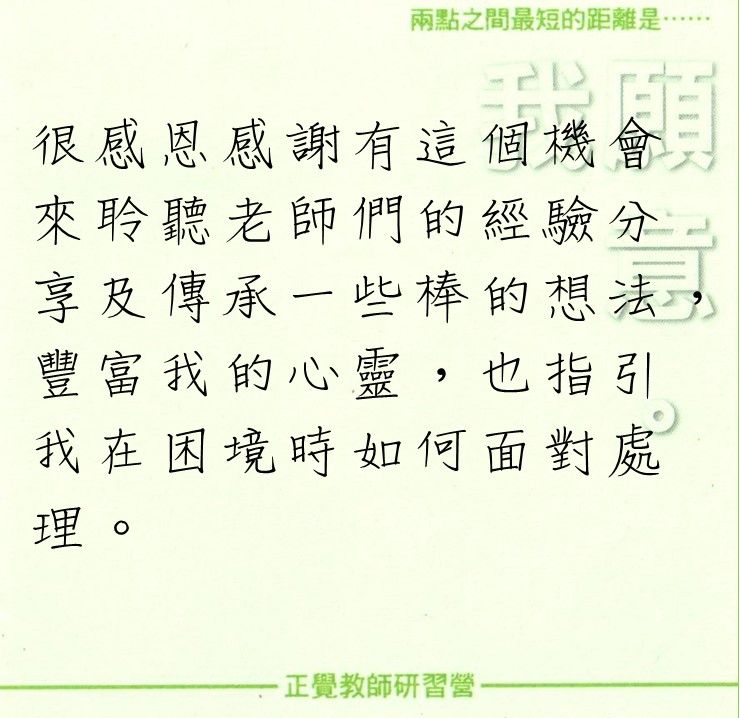 兩點之間最短的距離是⋯⋯
我願
意。
很感恩感謝有這個機會
來聆聽老師們的經驗分
享及傳承一些棒的想法，
豐富我的心靈，也指引
我在困境時如何面對處
理。
正覺教師研習營